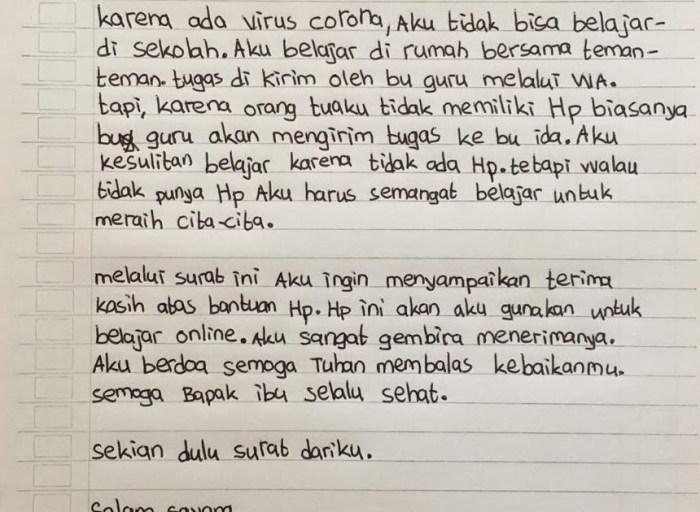 karena ada virus corona, Aku tidak bisa belajar-
di sekolah. Aku belajar di rumah bersama teman-
teman. tugas di kirim oleh bu guru melalui WA.
tapi, karena orang tuaku tidak memiliki Hp biasanya
bu guru akan mengirim tugas ke bu ida. Aku
kesulitan belajar karena tidak ada Hp. tetapi walau
tidak punya Hp Aku harus semangat belajar untuk
meraih cita-cita.
melalui surat ini Aku ingin menyampaikan terima
kasih atas bantuan Hp. Hp ini akan aku gunakan untuk
belajar online. Aku sangat gembira menerimanya.
Aku berdoa semoga Tuhan membalas kebaikanmu.
semoga Bapak ibu selalu sehat.
sekian dulu surat dariku.
Salam sayam